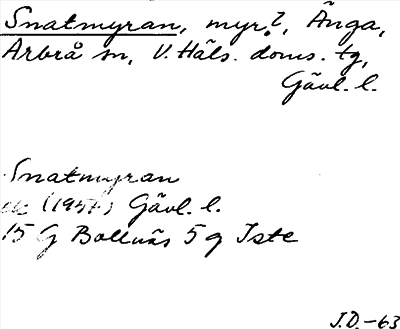 Snatmyran, myr?, Änga,
Arbrå sn, V. Häls. doms. tg,
Gävl. l.
Snatmyran
ek (1957) Gävl. l.
15 G Bollnäs 5 g Iste
J.D.-63